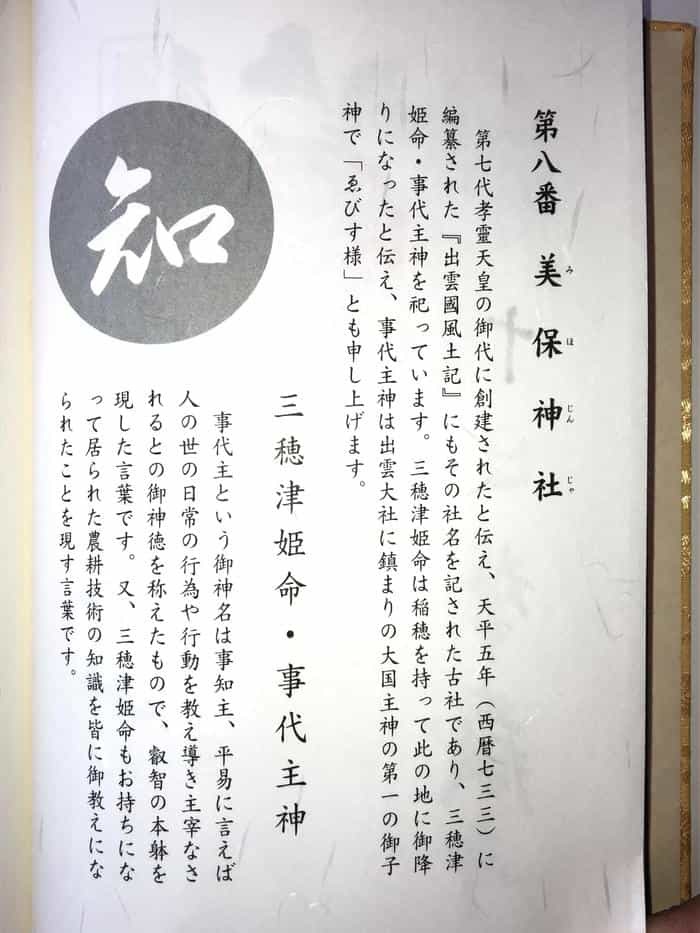 第八番 美保神社
み ほ じん じゃ
第七代孝霊天皇の御代に創建されたと伝え、天平五年（西暦七三三）に
編纂された『出雲國風土記』にもその社名を記された古社であり、三穂津
姫命・事代主神を祀っています。三穂津姫命は稲穂を持って此の地に御降
りになったと伝え、事代主神は出雲大社に鎮まりの大国主神の第一の御子
神で「ゑびす様」とも申し上げます。
三穂津姫命・事代主神
知
事代主という御神名は事知主、平易に言えば
人の世の日常の行為や行動を教え導き主宰なさ
れるとの御神徳を称えたもので、叡智の本躰を
現した言葉です。又、三穂津姫命もお持ちにな
って居られた農耕技術の知識を皆に御教えにな
られたことを現す言葉です。